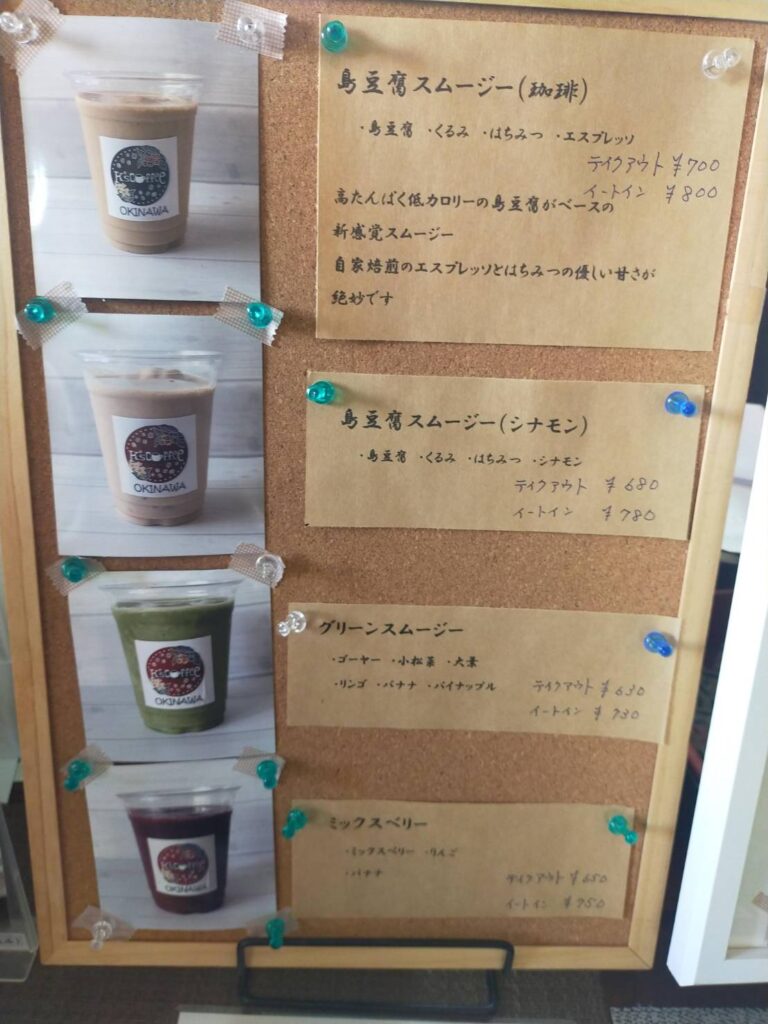 島豆腐スムージー(珈琲)
・島豆腐 ・くるみ ・はちみつ ・エスプレッソ
テイクアウト ¥700
イートイン ¥800
高たんぱく低カロリーの島豆腐がベースの
新感覚スムージー
自家焙煎のエスプレッソとはちみつの優しい甘さが
絶妙です
OKINAWA
島豆腐スムージー(シナモン)
・島豆腐 ・くるみ ・はちみつ ・シナモン
テイクアウト ¥680
イートイン ¥780
OKINAWA
グリーンスムージー
・ゴーヤー ・小松菜 ・大葉
・リンゴ ・バナナ ・パイナップル
テイクアウト ¥630
イートイン ¥730
OKINAWA
ミックスベリー
・ミックスベリー ・りんご
・バナナ
テイクアウト ¥650
イートイン ¥750
OKINAWA